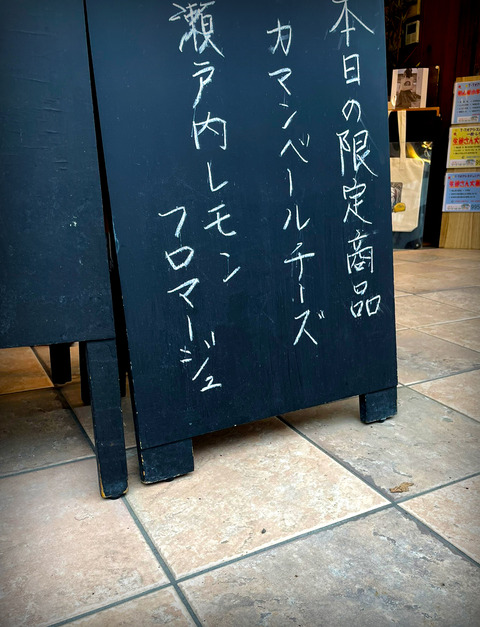 本日の限定商品
カマンベールチーズ
瀬戸内レモン
フロマージュ